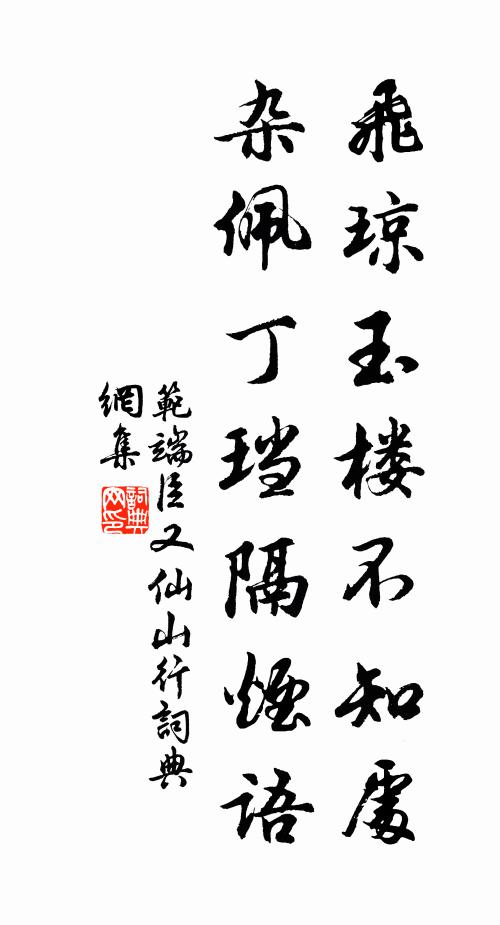 飛琼玉楼不知處
杂佩丁珰隔煙语
範端臣又仙山行詞典
網集
詞典
网印